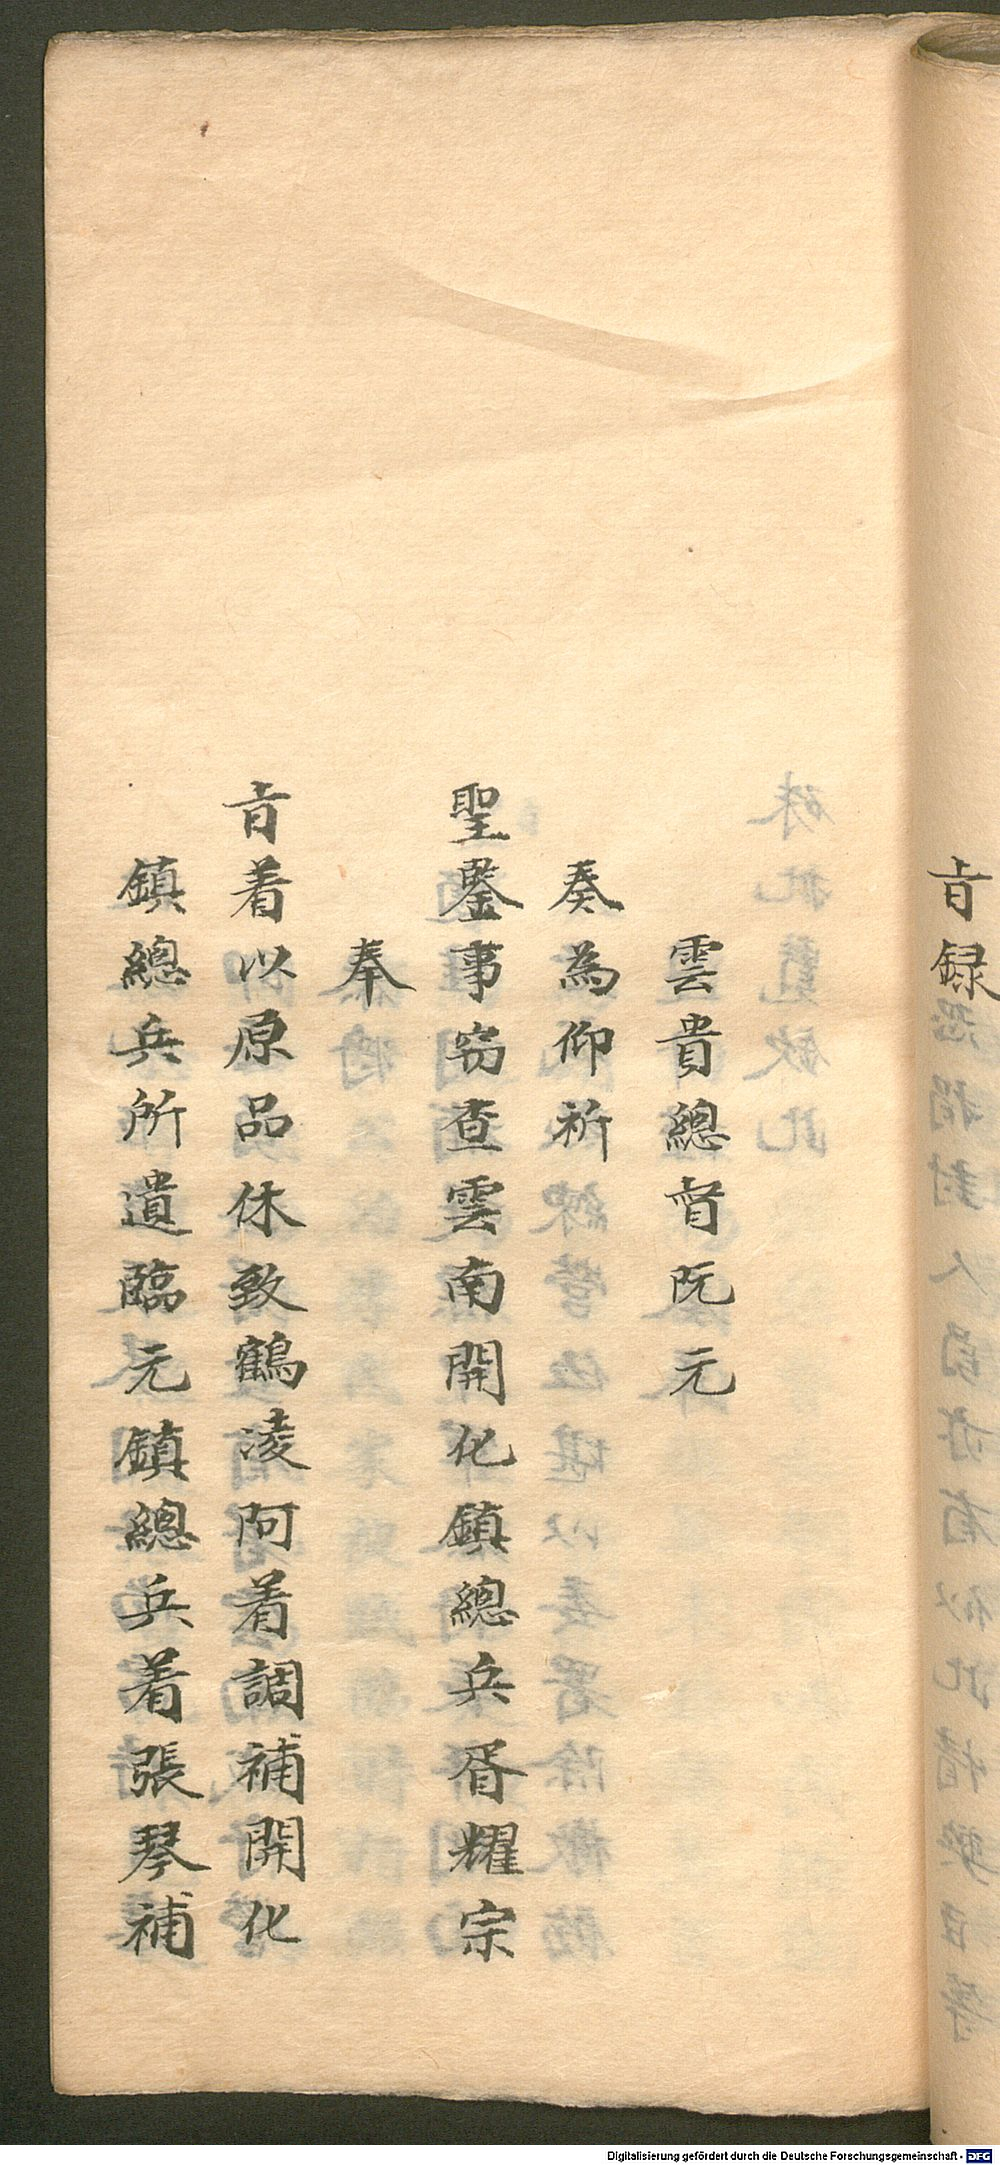 旨録
雲貴總督阮元
奏為仰祈
聖鑒事窃查雲南開化鎮總兵胥耀宗
奉
旨着以原品休致鶴凌阿着調補開化
鎮總兵所遺臨元鎮總兵着張琴補
Digitalisierung gefördert durch die Deutsche Forschungsgemeinschaft - DFG